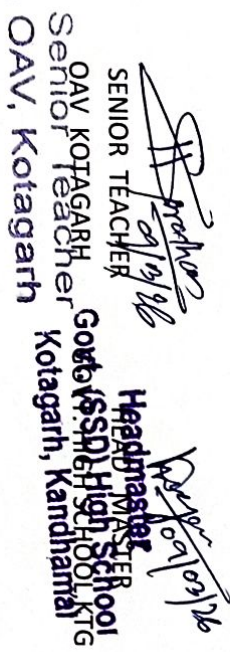 9/3/26
SENIOR TEACHER
OAV KOTAGARH
Senior Teacher
OAV, Kotagarh
09/03/26
HEAD MASTER
GOVT. HIGH SCHOOL KTG
Headmaster
Govt. (SSD) High School
Kotagarh, Kandhamal